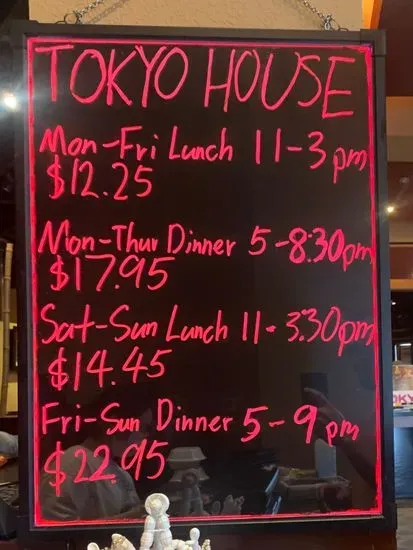 TOKYO HOUSE
Mon-Fri Lunch 11-3pm
$12.25
Mon-Thur Dinner 5-8:30pm
$17.95
Sat-Sun Lunch 11-3:30pm
$14.45
Fri-Sun Dinner 5-9pm
$22.95